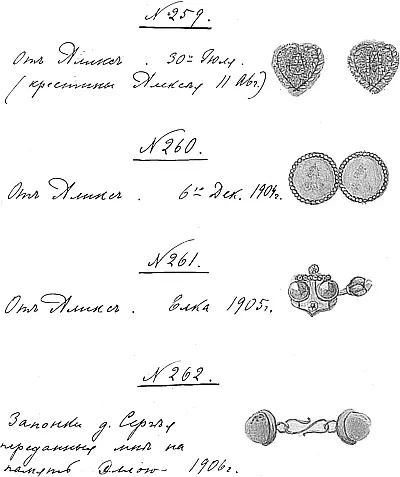 N 259.
Отъ Аликсъ . 30го Июля.
(крестины Алексѣя 11 Авг.)
N 260.
Отъ Аликсъ . 6го Дек. 1904г.
N 261.
Отъ Аликсъ . Елка 1905г.
N 262.
Запонки д. Сергѣя
переданныя мнѣ на
память Эллою — 1906г.